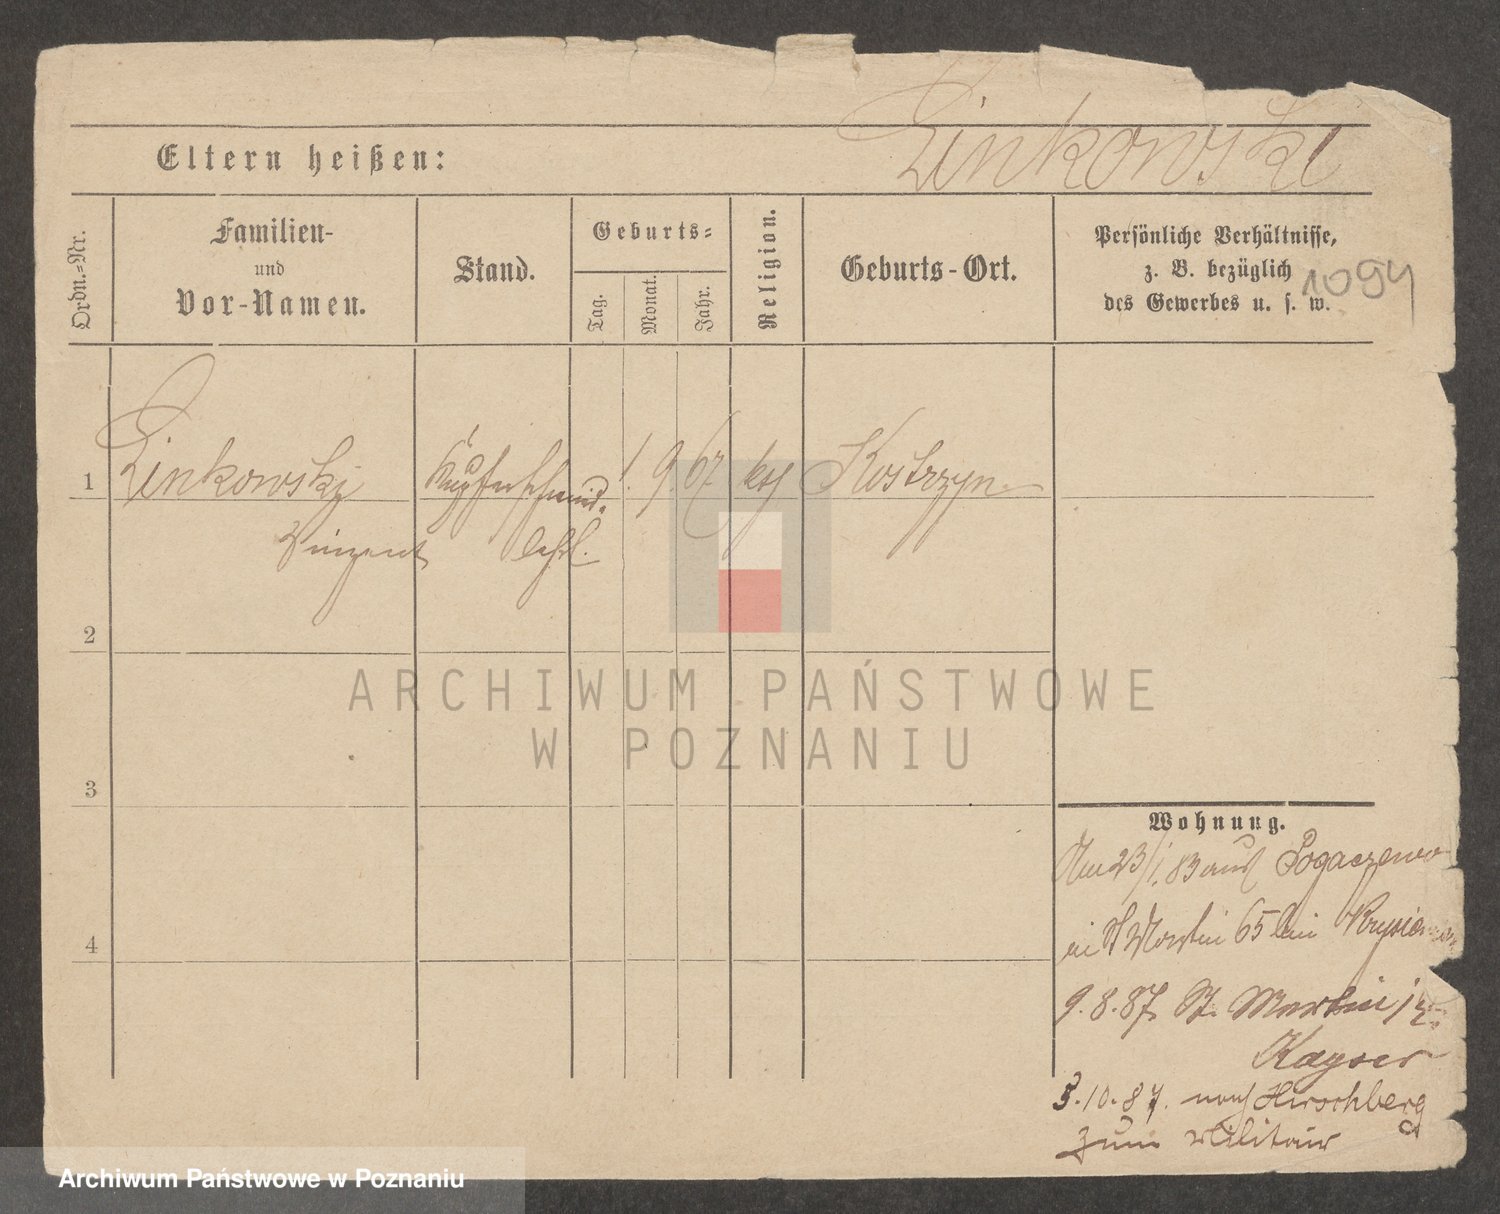 Zinkowski
Eltern heißen:
Ordn.=Nr.
Familien-
und
Vor-Namen.
Stand.
Geburts=
Tag.
Monat.
Jahr.
Religion.
Geburts-Ort.
Persönliche Verhältnisse,
z. B. bezüglich
des Gewerbes u. s. w.
1094
1 Zinkowski Kupferschmid. 1. 9. 67 kth Kostrzyn
Vinzent Lehrl.
2
3
4
ARCHIWUM PAŃSTWOWE
W POZNANIU
Wohnung.
Am 23/1. 83 aus Pogaczewo
St Martin 65 bei
9. 8. 87. St. Martin
Kayser
3. 10. 87. nach Hirschberg
zum Militair
Archiwum Państwowe w Poznaniu